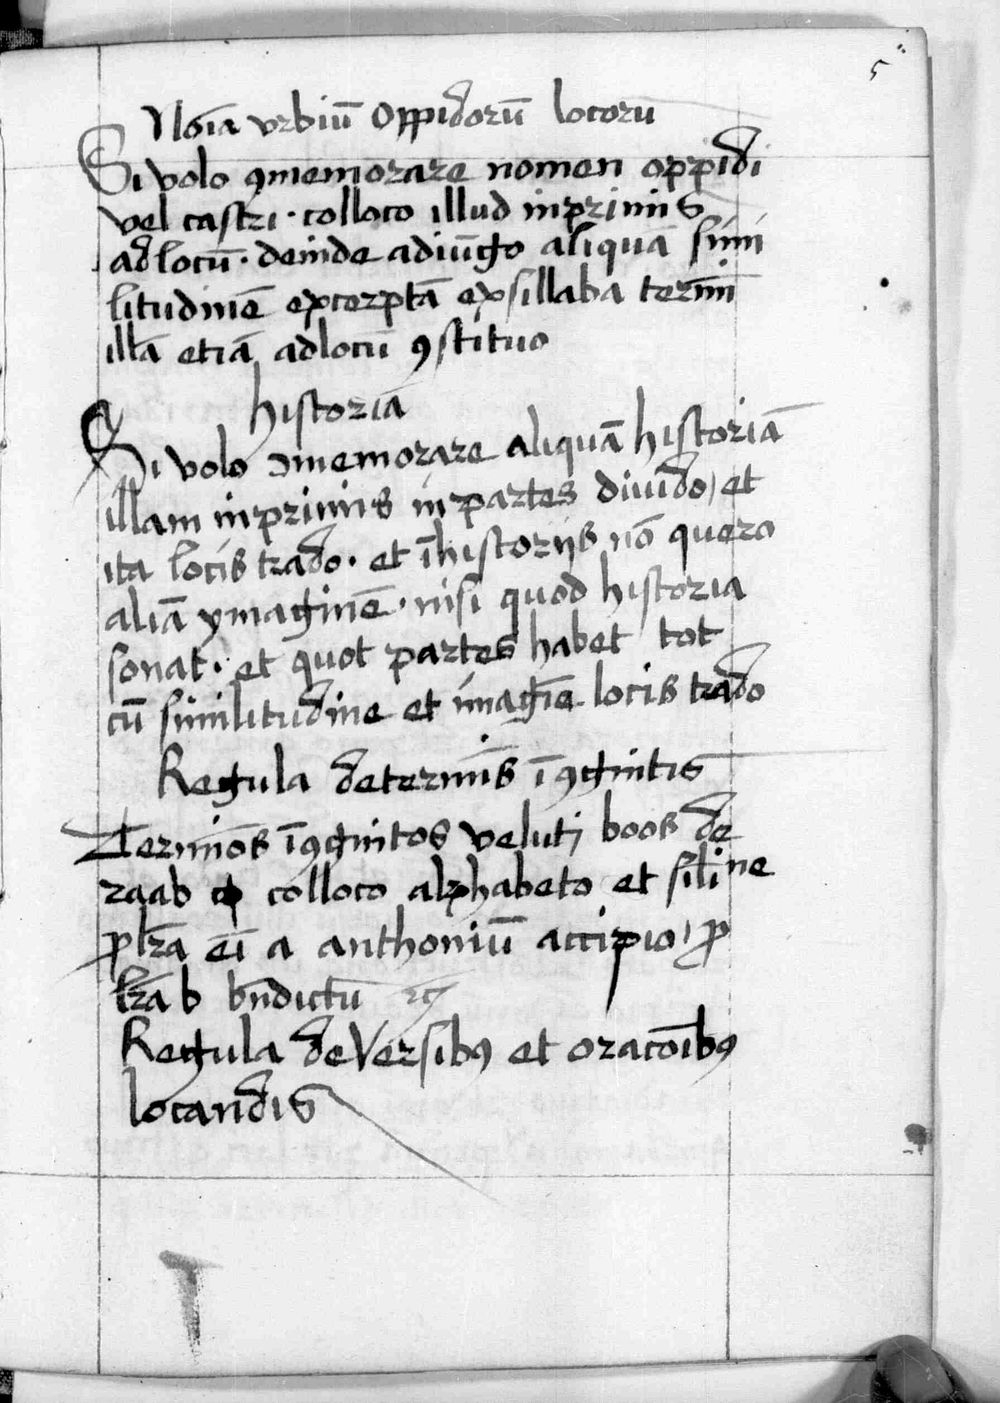 5
Noīa vrbiū oppidorū locorū
Si volo ꝯmemorare nomen oppidi
vel castri · colloco illud inprimis
ad locū · deinde adiūgo aliquā simi
litudinē excerptā exsillaba termini
illā etiā adlocū ꝯstituo
historia
Si volo ꝯmemorare aliquā historiā
illam inprimis inpartes diuido / et
ita locis trado · et ī historijs nō quero
aliā ymaginē · nisi quod historia
sonat · et quot partes habet tot
cū similitudine et imagīe locis trado
Regula determīs īꝯgnitis
Terminos īꝯgnitos veluti boos de
raab colloco alphabeto et siliīne
ꝓ lr̄a a anthoniū accipio / ꝓ
lr̄a b bn̄dictū
Regula de Versibꝰ et oracōībꝰ
locandis